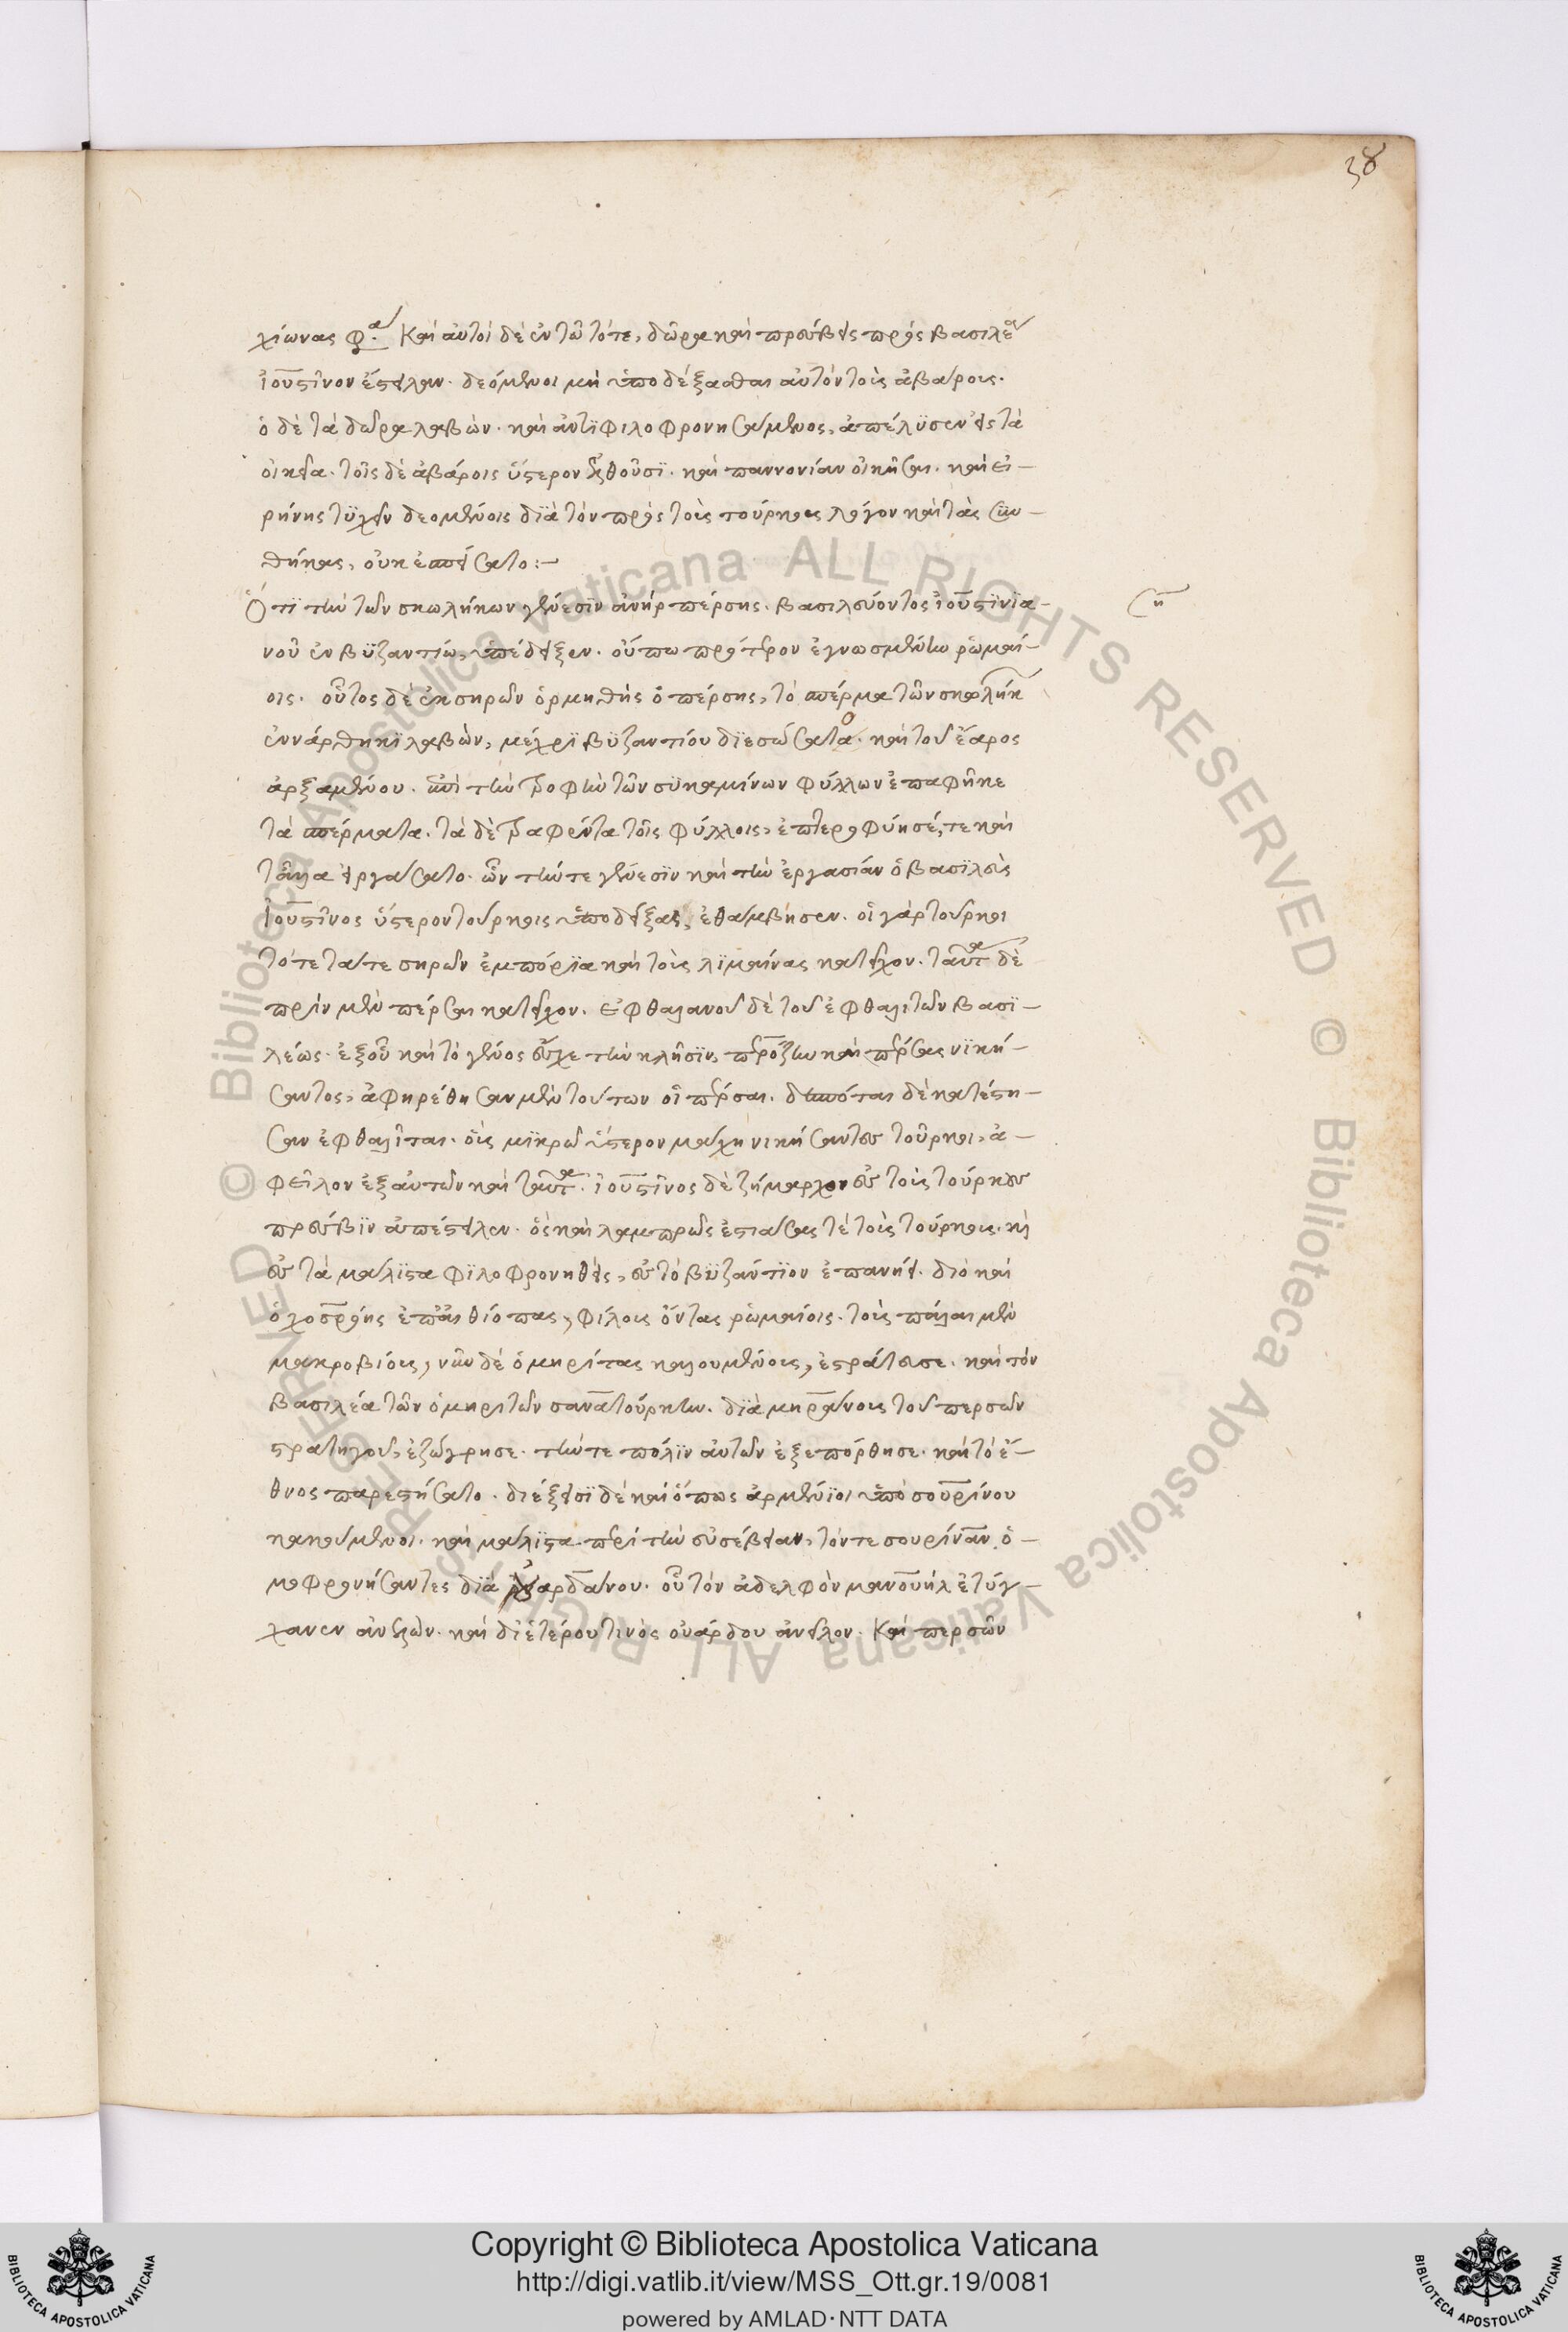 38
χίωνας φα. Καὶ αὐτοὶ δὲ ἐν τῶ τότε, δῶρα καὶ πρέσβεις πρὸς βασιλέα
ἰουστῖνον ἔστειλαν. δεόμενοι μὴ ὑποδέξασθαι αὐτὸν τοὺς ἀβάρους.
ὁ δὲ τὰ δῶρα λαβὼν. καὶ ἀντιφιλοφρονησάμενος, ἀπέλυσεν εἰς τὰ
οἰκεῖα. τοῖς δὲ ἀβάροις ὕστερον ἐλθοῦσι. καὶ παννονίαν οἰκῆσαι. καὶ εἰ-
ρήνης τυχεῖν δεομένοις διὰ τὸν πρὸς τοὺς τούρκους λόγον καὶ τὰς συν-
θήκας, οὐκ ἐσπείσατο:-
Ὅτι τὴν τῶν σκωλήκων γένεσιν ἀνήρ πέρσης. βασιλεύοντος ἰουστινια-
νοῦ ἐν βυζαντίω, ὑπέδειξεν. οὔπω πρότερον ἐγνωσμένην ῥωμαί-
οις. οὗτος δὲ ἐκ σηρῶν ὁρμηθεὶς ὁ πέρσης, τὸ σπέρμα τῶν σκωλήκ
ἐν νάρθηκι λαβὼν, μέχρι βυζαντίου διεσώσατο. καὶ τοῦ ἔαρος
ἀρξαμένου. ἐπὶ τὴν τροφὴν τῶν συκαμίνων φύλλων ἐπαφῆκε
τὰ σπέρματα. τὰ δὲ τραφέντα τοῖς φύλλοις, ἐπτεροφύησέ, τε καὶ
τἄλλα εἰργάσατο. ὧν τήν τε γένεσιν καὶ τὴν ἐργασίαν ὁ βασιλεὺς
Ἰουστῖνος ὕστερον τούρκοις ὑποδείξας, ἐθάμβησεν. οἱ γὰρ τούρκοι
τότε τά τε σηρῶν ἐμπόρια καὶ τοὺς λιμαίνας κατεῖχον. ταῦτα δὲ
πρὶν μὲν πέρσαι κατεῖχον. ἐφθαλανοῦ δὲ τοῦ ἐφθαλιτῶν βασι-
λέως. ἐξ οὗ καὶ τὸ γένος ἔσχε τὴν κλῆσιν, περόζην καὶ πέρσας νική-
σαντος, ἀφηρέθησαν μὲν τούτων οἱ πέρσαι. δεσπόται δὲ κατέστη-
σαν ἐφθαλῖται. οὓς μικρῶ ὕστερον μάχη νικήσαντες τοῦρκοι, ἀ-
φεῖλον ἐξ αὐτῶν καὶ ταῦτα. ἰουστῖνος δὲ ζήμαρχον ἐς τοὺς τούρκους
πρέσβιν ἀπέστειλεν. ὃς καὶ λαμπρῶς ἑστιάσας τὲ τοὺς τούρκους. καὶ
ἐς τὰ μάλιστα φιλοφρονηθεὶς, ἐς τὸ βυζάντιον ἐπανήει. διὸ καὶ
ὁ χοσρόης ἐπ' αἰθίοπας, φίλους ὄντας ῥωμαίοις. τοὺς πάλαι μὲν
μακροβίους, νῦν δὲ ὁμηρίτας καλουμένους, ἐστράτευσε. καὶ τὸν
βασιλέα τῶν ὁμηριτῶν σανατούρκην. διὰ μηράνους τοῦ περσῶν
στρατηγοῦ, ἐζώγρησε. τήν τε πόλιν αὐτῶν ἐξεπόρθησε. καὶ τὸ ἔ-
θνος παρεστήσατο. διέξεισι δὲ καὶ ὅπως ἀρμένιοι ὑπὸ σουρίνου
κακούμενοι. καὶ μάλιστα περὶ τὴν εὐσέβειαν, τόν τε σουρίναν ὁ-
μοφρονήσαντες διὰ οὐαρδάνου. οὗ τὸν ἀδελφὸν μανουήλ ἐτύγ-
χανεν ἀνελὼν. καὶ δι' ἑτέρου τινὸς οὐάρδου ἀνεῖλον. Καὶ περσῶν
Copyright © Biblioteca Apostolica Vaticana
http://digi.vatlib.it/view/MSS_Ott.gr.19/0081
powered by AMLAD·NTT DATA